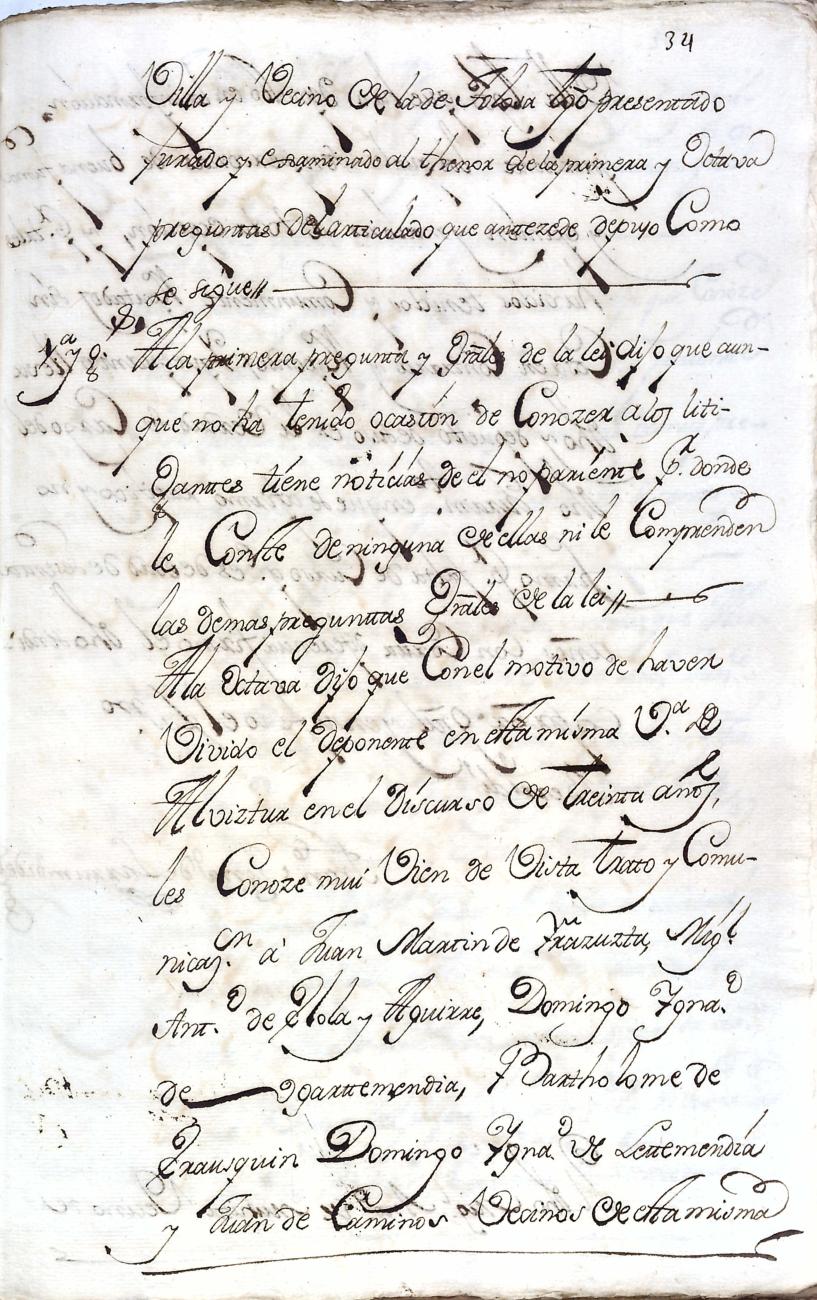 34
Villa y Vecino de la de Tolosa tgô presentado
jurado y esaminado al thenor de las primera y Octava
preguntas del articulado que antezede depuso Como
se sigue//
1ª y 8ª A la primera pregunta y Grâles de la lei dijo que aun-
que no ha tenido ocasion de Conozer a los liti-
gantes tiene noticias de el no pariente Pª. donde
le Conste de ninguna de ellas ni le Comprenden
las demas preguntas Grâles de la lei//
A la Octava dijo que Con el motivo de haver
Vivido el deponente en esta misma Vª. de
Alviztur en el Discurso de treinta años,
les Conoze mui Vien de Vista trato y Comu-
nicaz.on a Juan Martin de Yrazuzta, Mig.l
Ant.o de Elola y Aguirre, Domingo Ygna.o
de Ogarttemendia, Bartholome de
Yrausquin Domingo Ygna.o de Lettemendia
y Juan de Caminos Vecinos de esta misma